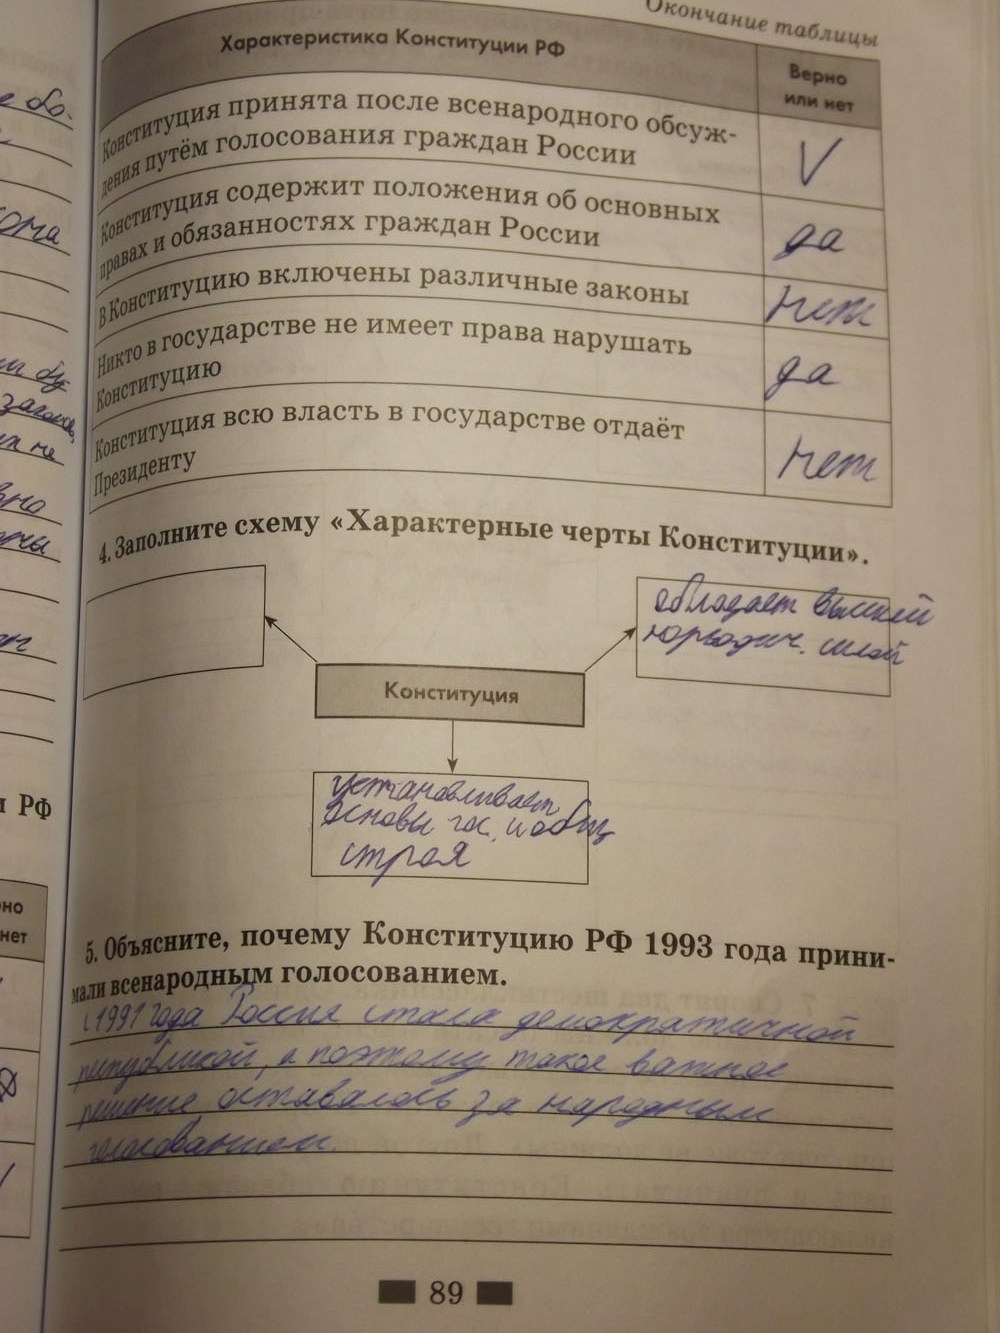 Окончание таблицы
Характеристика Конституции РФ
Верно
или нет
Конституция принята после всенародного обсуж-
дения путём голосования граждан России
V
Конституция содержит положения об основных
правах и обязанностях граждан России
да
В Конституцию включены различные законы
нет
Никто в государстве не имеет права нарушать
Конституцию
да
Конституция всю власть в государстве отдаёт
Президенту
нет
4. Заполните схему «Характерные черты Конституции».
обладает высшей
юридич. силой
Конституция
устанавливает
основы гос. и общ
строя
5. Объясните, почему Конституцию РФ 1993 года прини-
мали всенародным голосованием.
с 1991 года Россия стала демократичной
республикой, и поэтому такое важное
решение оставалось за народным
голосованием.
89
и РФ
но
нет